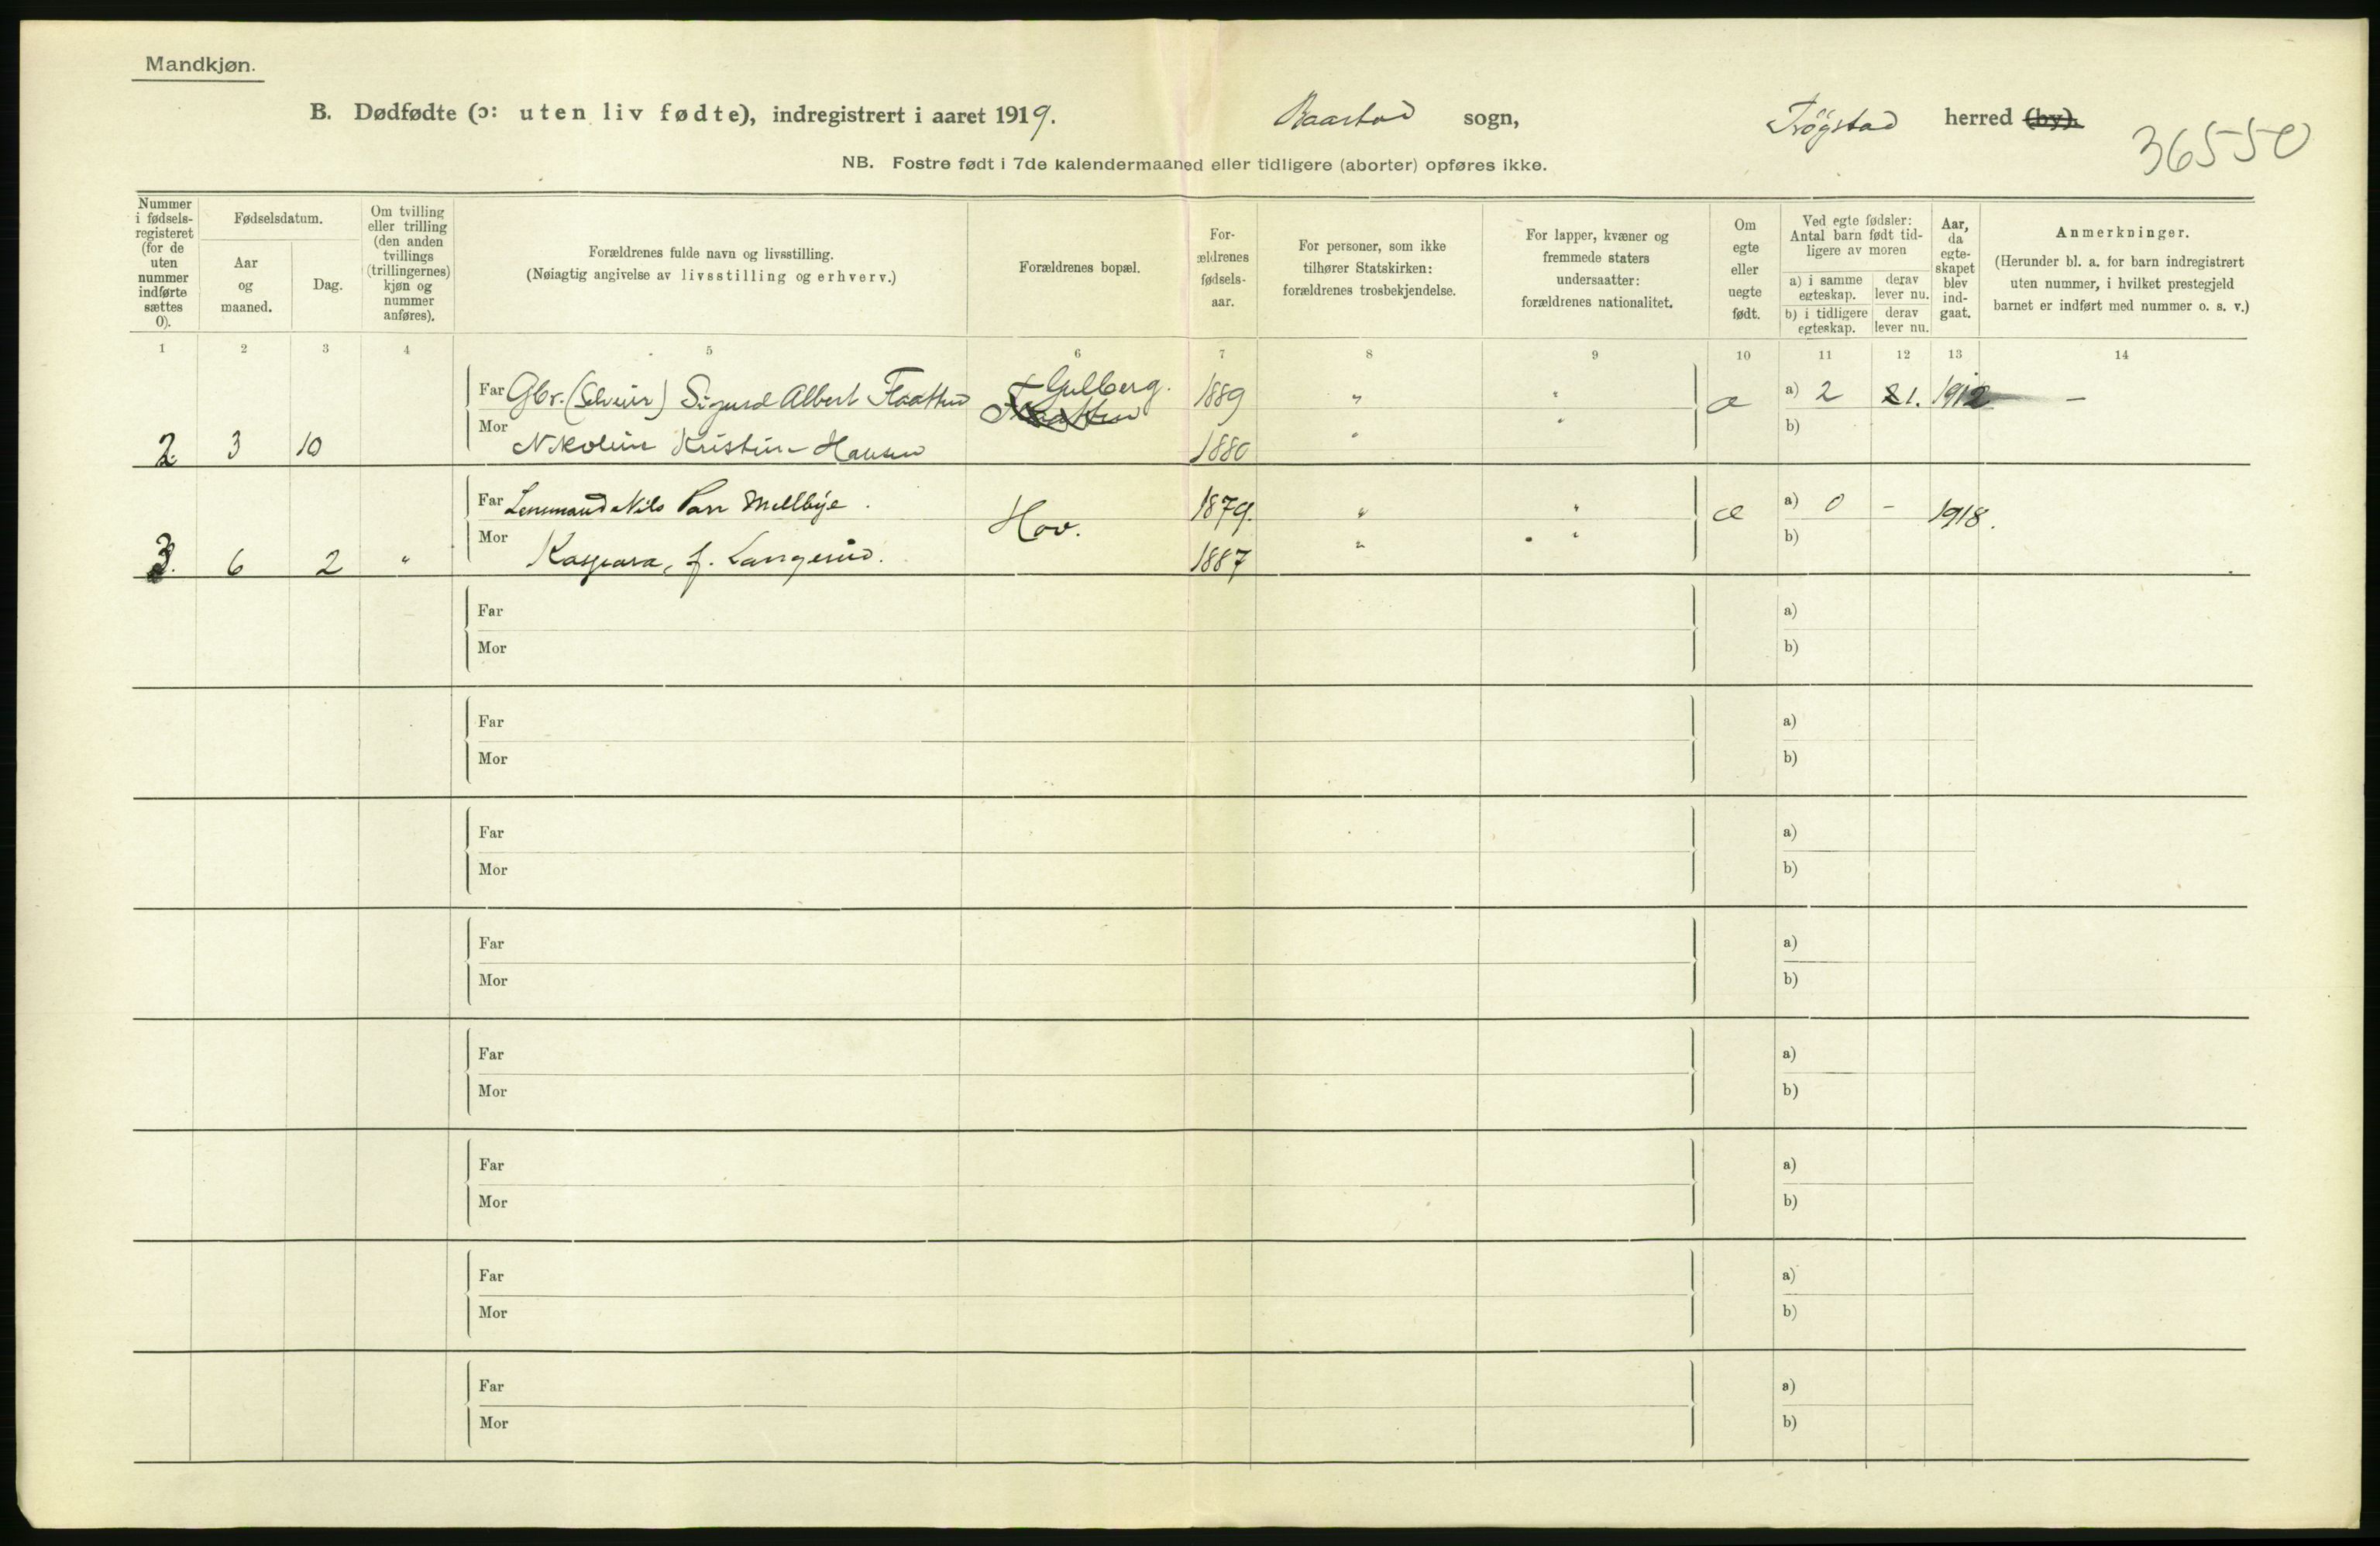 Mandkjøn.
B. Dødfødte (ɔ: uten liv fødte), indregistrert i aaret 1919. Baastad sogn, Trøgstad herred (by).
36550
NB. Fostre født i 7de kalendermaaned eller tidligere (aborter) opføres ikke.
Nummer i fødsels-registeret (for de uten nummer indførte sættes 0).
Fødselsdatum.
Aar og maaned.
Dag.
Om tvilling eller trilling (den anden tvillings (trillingernes) kjøn og nummer anføres).
Forældrenes fulde navn og livsstilling.
(Nøiagtig angivelse av livsstilling og erhverv.)
Forældrenes bopæl.
For-ældrenes fødsels-aar.
For personer, som ikke tilhører Statskirken: forældrenes trosbekjendelse.
For lapper, kvæner og fremmede staters undersaatter: forældrenes nationalitet.
Om egte eller uegte født.
Ved egte fødsler: Antal barn født tid-ligere av moren
a) i samme egteskap.
derav lever nu.
b) i tidligere egteskap.
derav lever nu.
Aar, da egte-skapet blev ind-gaat.
Anmerkninger.
(Herunder bl. a. for barn indregistrert uten nummer, i hvilket prestegjeld barnet er indført med nummer o. s. v.)
1 2 3 4 5 6 7 8 9 10 11 12 13 14
Far Gbr. (Selveier) Sigurd Albert Flaatten Gulberg. 1889 " " æ a) 2 2 1. 1912 —
Flaatten
Mor Nikoline Kristine Hansen 1880 " " b)
2. 3 10
Far Lensmand Nils Parr Mellbye. Hov. 1879. " " æ a) 0 - 1918.
Mor Kaspara, f. Langerud. 1887 " " b)
3. 6 2 "
Far a)
Mor b)
Far a)
Mor b)
Far a)
Mor b)
Far a)
Mor b)
Far a)
Mor b)
Far a)
Mor b)
Far a)
Mor b)
Far a)
Mor b)